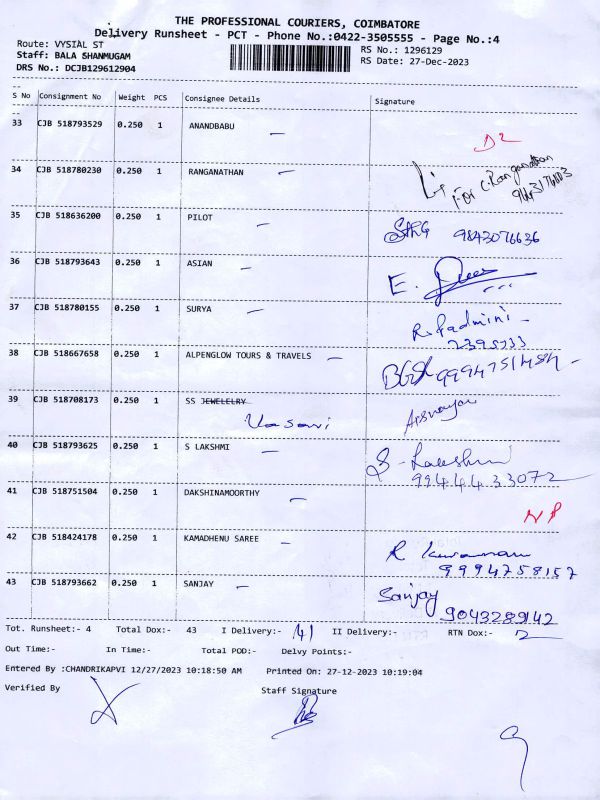 THE PROFESSIONAL COURIERS, COIMBATORE
Delivery Runsheet - PCT - Phone No.:0422-3505555 - Page No.:4
Route: VYSIAL ST RS No.: 1296129
Staff: BALA SHANMUGAM RS Date: 27-Dec-2023
DRS No.: DCJB129612904
S No Consignment No Weight PCS Consignee Details Signature
33 CJB 518793529 0.250 1 ANANDBABU
D2
34 CJB 518780230 0.250 1 RANGANATHAN
For C. Ranganathan
35 CJB 518636200 0.250 1 PILOT
9843076636
36 CJB 518793643 0.250 1 ASIAN
E.
37 CJB 518780155 0.250 1 SURYA
R. Padmini
38 CJB 518667658 0.250 1 ALPENGLOW TOURS & TRAVELS
9994751484
39 CJB 518708173 0.250 1 SS JEWELELRY
Vasavi
40 CJB 518793625 0.250 1 S LAKSHMI
S. Lakshmi
9944433072
41 CJB 518751504 0.250 1 DAKSHINAMOORTHY
NP
42 CJB 518424178 0.250 1 KAMADHENU SAREE
R
9994758157
43 CJB 518793662 0.250 1 SANJAY
Sanjay
9043289142
Tot. Runsheet:- 4 Total Dox:- 43 I Delivery:- 41 II Delivery:- RTN Dox:- 2
Out Time:- In Time:- Total POD:- Delvy Points:-
Entered By :CHANDRIKAPVI 12/27/2023 10:18:50 AM Printed On: 27-12-2023 10:19:04
Verified By Staff Signature